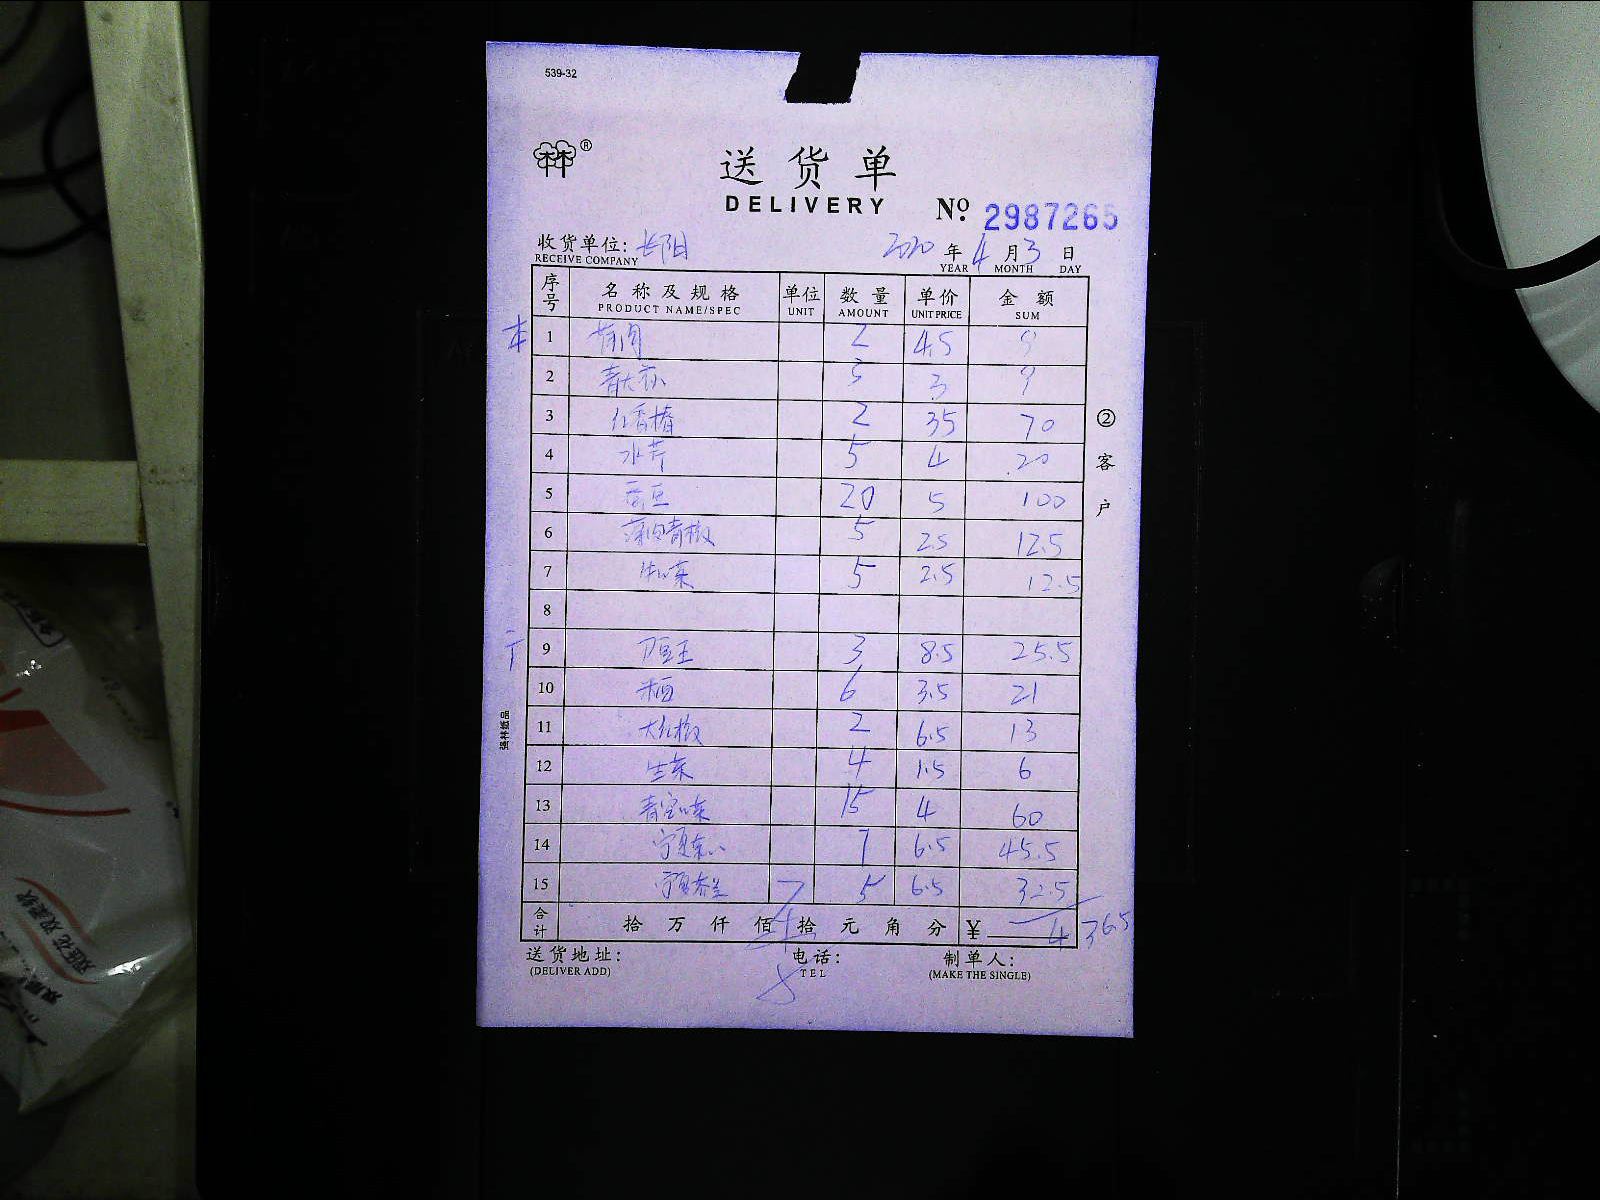 539-32
®
送货单
DELIVERY Nº. 2987265
收货单位: 长阳 2020 年 4 月 3 日
RECEIVE COMPANY YEAR MONTH DAY
序号 名称及规格 单位 数量 单价 金额
PRODUCT NAME/SPEC UNIT AMOUNT UNIT PRICE SUM
1 2 4.5 9
2 青大 3 3 9
3 红香椿 2 35 70
4 水芹 5 4 20
5 豆 20 5 100
6 薄肉青椒 5 2.5 12.5
7 菜 5 2.5 12.5
8
9 豆王 3 8.5 25.5
10 6 3.5 21
11 大红椒 2 6.5 13
12 生菜 4 1.5 6
13 青 菜 15 4 60
14 宁夏菜心 7 6.5 45.5
15 宁夏 5 6.5 32.5
合计 拾 万 仟 佰 拾 元 角 分 ¥ 436.5
送货地址: 电话: 制单人:
(DELIVER ADD) TEL (MAKE THE SINGLE)
②客户
强林纸品